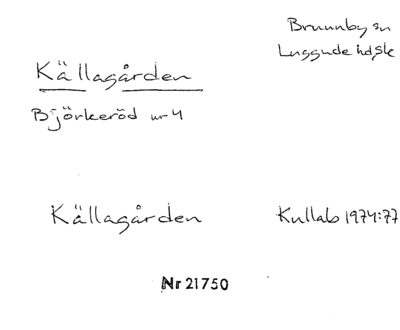 Brunnby sn
Luggude hdsk
Källagården
Björkeröd nr 4
Källagården
Kullab 1974:77
Nr 21750